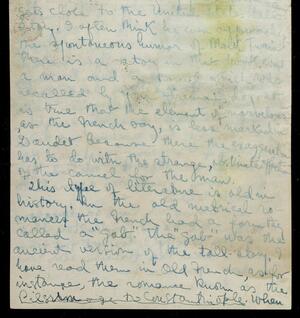 gets close to the United
story. I often think
the spontaneous humor of Mark Twain
There is a story
a man and a
recalled by
is true that the element of marvelous,
as the French say, is less marked in
Daudet because there the exaggerat
has to do with the strange,
of the camel for the man.
This type of literature is old in
history. In the old metrical ro
mances the French had a form they
called a "gab". The "gab" was the
ancient version of the tall story. I
have read them in Old French, as for
instance, the romance known as the
Pilgrimage to Constantinople. When